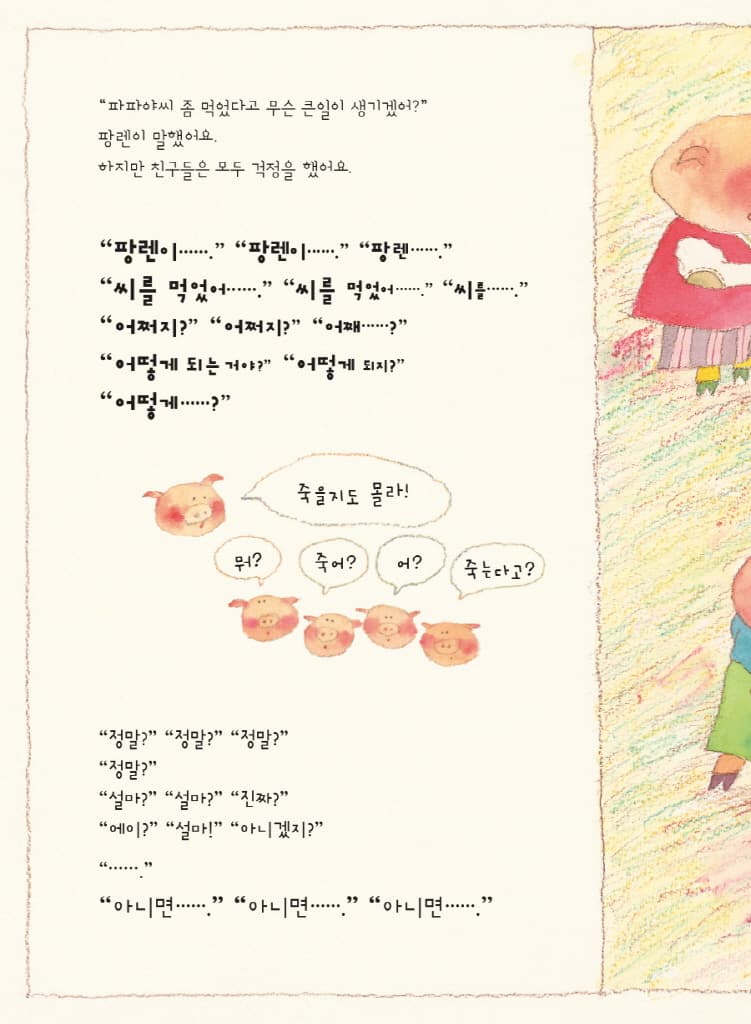 “파파야씨 좀 먹었다고 무슨 큰일이 생기겠어?”
팡렌이 말했어요.
하지만 친구들은 모두 걱정을 했어요.
“팡렌이…….” “팡렌이…….” “팡렌…….”
“씨를 먹었어…….” “씨를 먹었어…….” “씨를…….”
“어쩌지?” “어쩌지?” “어째……?”
“어떻게 되는 거야?” “어떻게 되지?”
“어떻게……?”
죽을지도 몰라!
뭐?
죽어?
어?
죽는다고?
“정말?” “정말?” “정말?”
“정말?”
“설마?” “설마?” “진짜?”
“에이?” “설마!” “아니겠지?”
“…….”
“아니면…….” “아니면…….” “아니면…….”